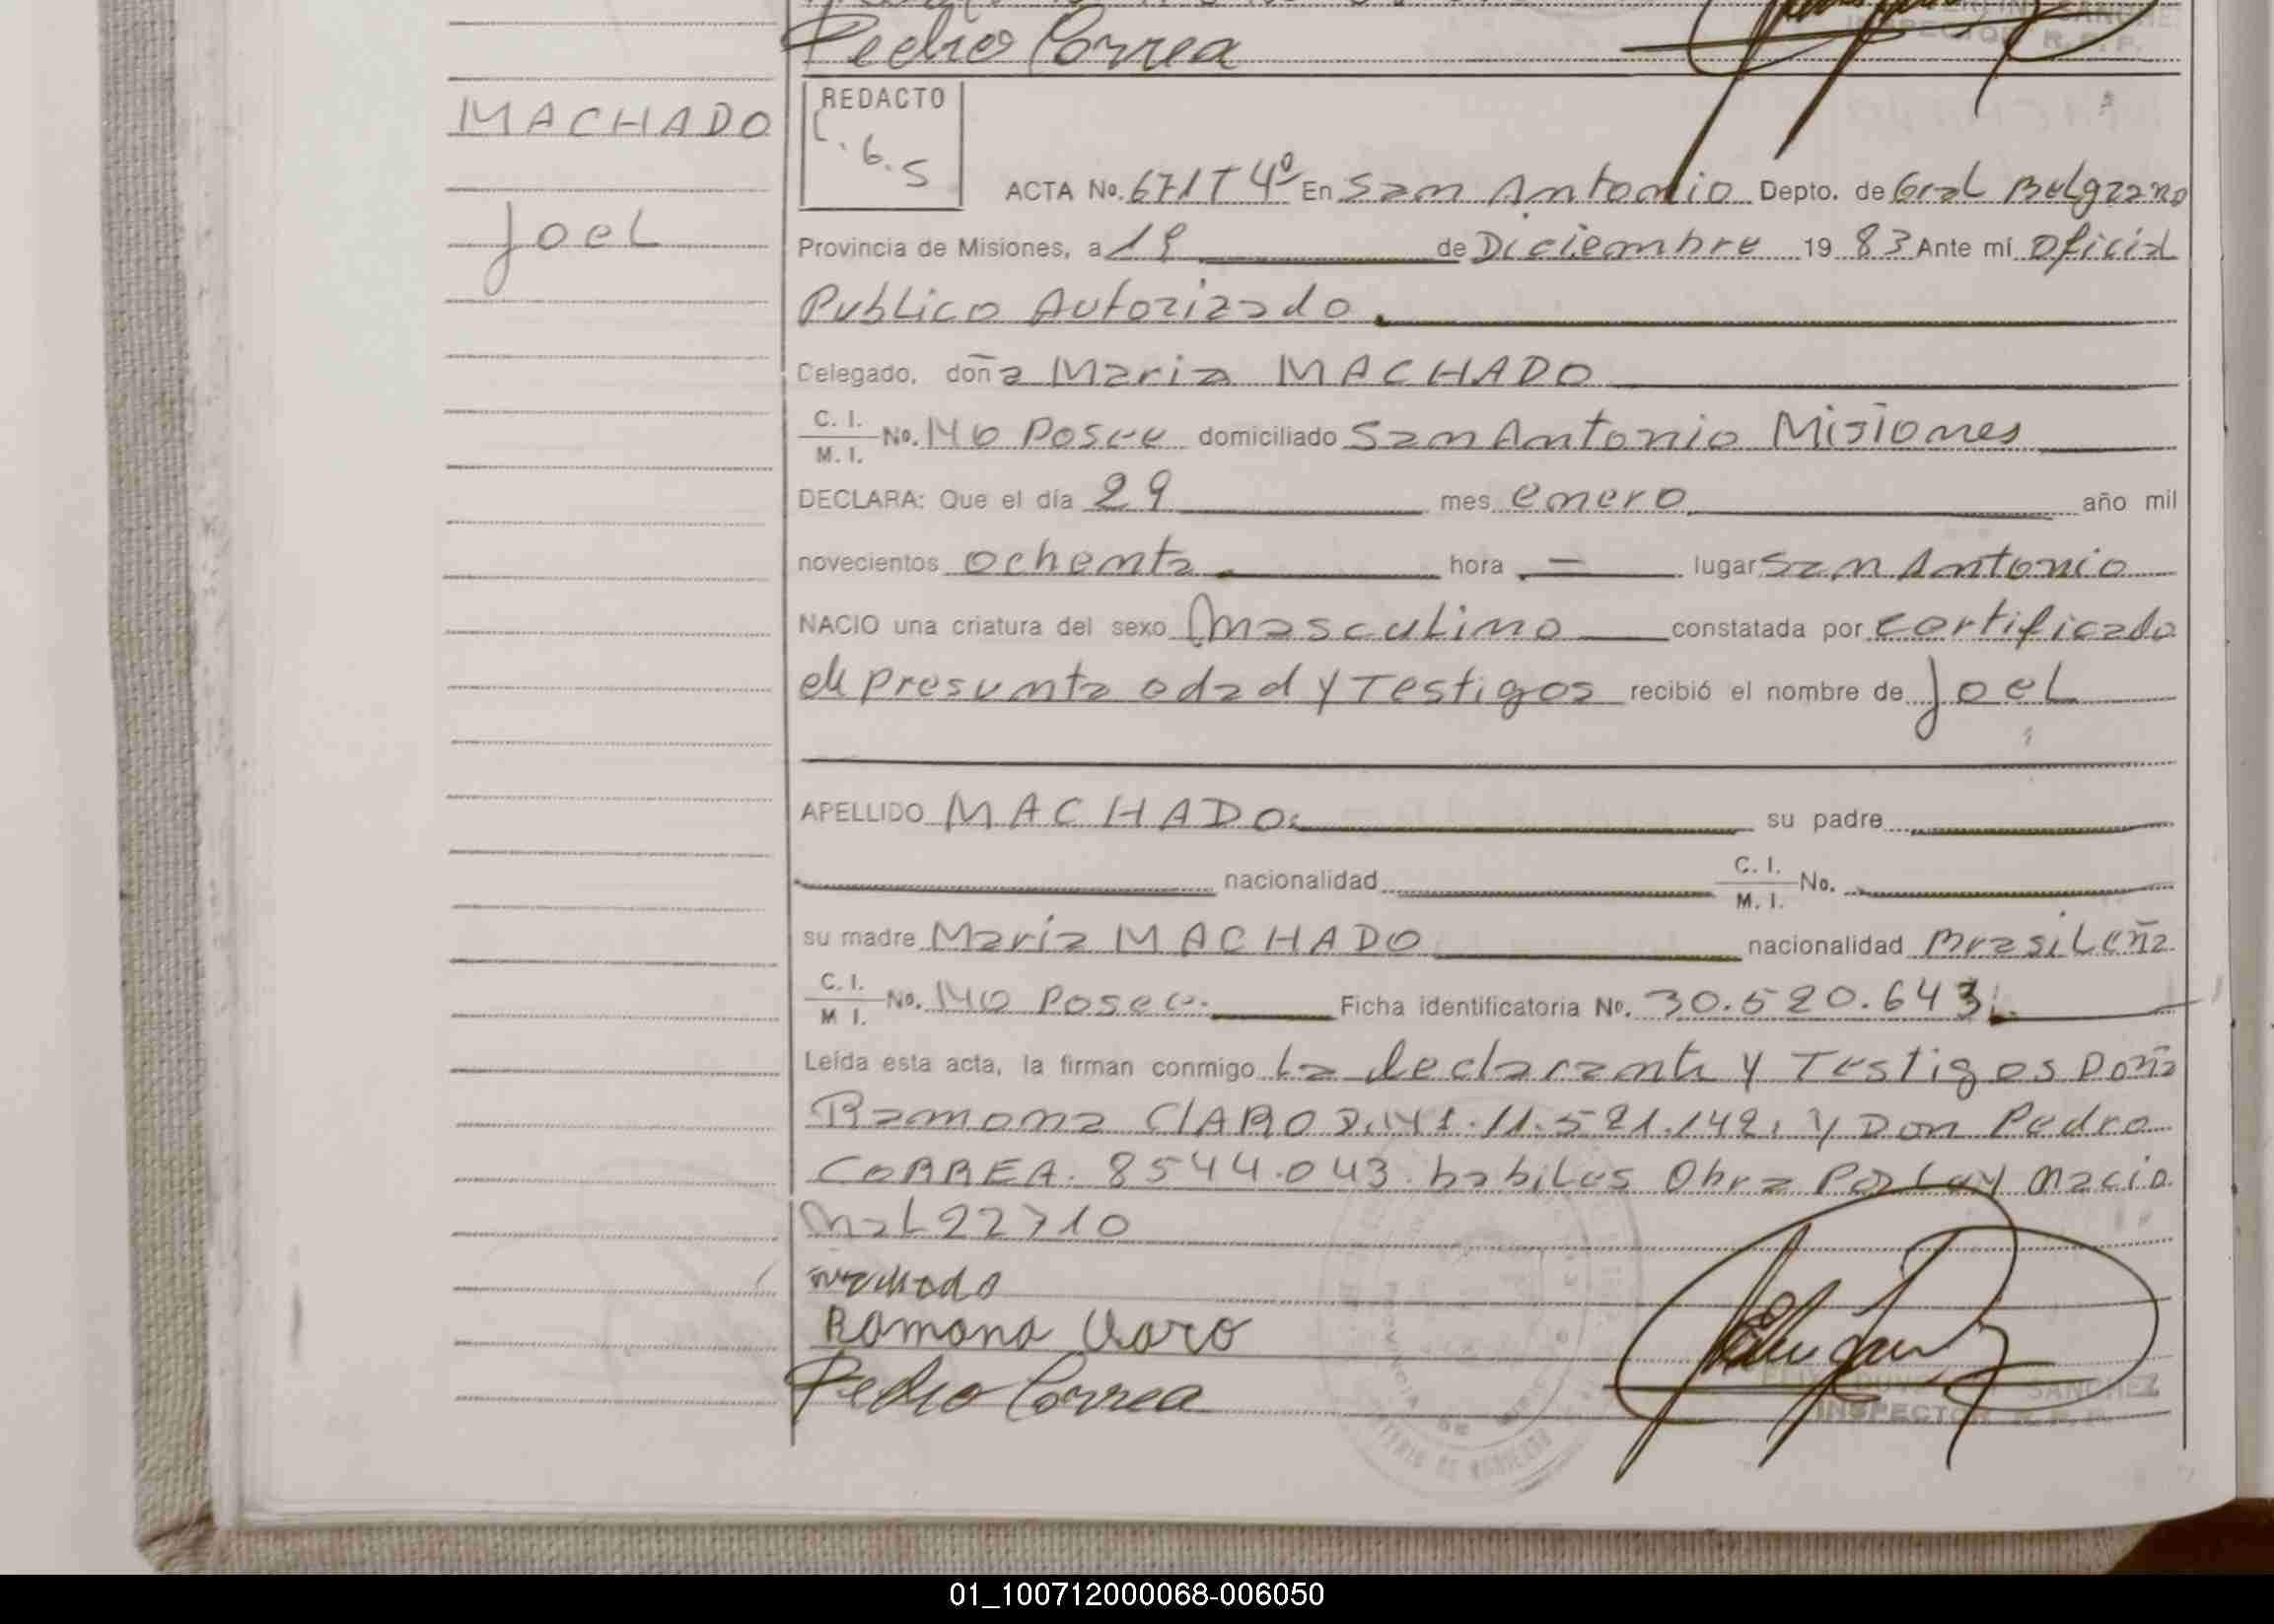 Pedro Correa
INSPECTOR R. P. P.
MACHADO
Joel
REDACTO
C.6.S
ACTA No. 671 T 4º En San Antonio Depto. de Gral Belgrano
Provincia de Misiones, a 19 de Diciembre 19 83 Ante mí Oficial
Publico Autorizado.
Delegado, doña Maria MACHADO
C. I.
M. I. No. No Posee domiciliado San Antonio Misiones
DECLARA: Que el día 29 mes enero año mil
novecientos ochenta hora = lugar San Antonio
NACIO una criatura del sexo masculino constatada por certificado
de Presunta edad y Testigos recibió el nombre de Joel
APELLIDO MACHADO. su padre
nacionalidad C. I.
M. I. No.
su madre María MACHADO nacionalidad Brasileña
C. I.
M I. No. No Posee. Ficha identificatoria No. 30.520.643.
Leída esta acta, la firman conmigo La declarante y Testigos Doña
Ramona CLARO D.N.I. 11.521.142. y Don Pedro
CORREA. 8544.043. habiles Obra Por Ley Nacio
nal 22710
Machado
Ramona Claro
Pedro Correa
SANCHEZ
INSPECTOR R. P. P.
01_100712000068-006050